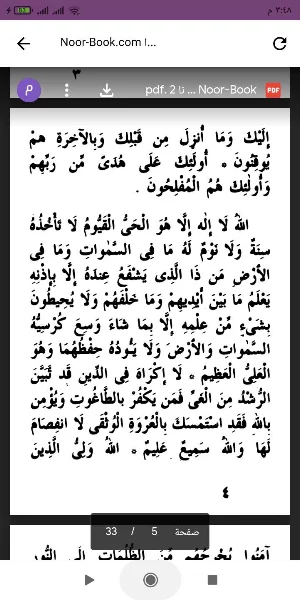 ٣:٤٨ م
Noor-Book.com ا...
٣
P
pdf. 2 نا ... Noor-Book
PDF
إِلَيْكَ وَمَا أُنزِلَ مِن قَبْلِكَ وَبِالْآخِرَةِ هُمْ
يُوقِنُونَ * أُولَٰئِكَ عَلَى هُدًى مِّن رَّبِّهِمْ
وَأُولَٰئِكَ هُمُ الْمُفْلِحُونَ .
اللهُ لَا إِلٰهَ إِلَّا هُوَ الْحَيُّ الْقَيُّومُ لَا تَأْخُذُهُ
سِنَةٌ وَلَا نَوْمٌ لَهُ مَا فِي السَّمٰوَاتِ وَمَا فِي
الْأَرْضِ مَن ذَا الَّذِي يَشْفَعُ عِندَهُ إِلَّا بِإِذْنِهِ
يَعْلَمُ مَا بَيْنَ أَيْدِيهِمْ وَمَا خَلْفَهُمْ وَلَا يُحِيطُونَ
بِشَيْءٍ مِّنْ عِلْمِهِ إِلَّا بِمَا شَاءَ وَسِعَ كُرْسِيُّهُ
السَّمٰوَاتِ وَالْأَرْضَ وَلَا يَئُودُهُ حِفْظُهُمَا وَهُوَ
الْعَلِيُّ الْعَظِيمُ * لَا إِكْرَاهَ فِي الدِّينِ قَد تَّبَيَّنَ
الرُّشْدُ مِنَ الْغَيِّ فَمَن يَكْفُرْ بِالطَّاغُوتِ وَيُؤْمِن
بِاللهِ فَقَدِ اسْتَمْسَكَ بِالْعُرْوَةِ الْوُثْقَى لَا انفِصَامَ
لَهَا وَاللهُ سَمِيعٌ عَلِيمٌ * اللهُ وَلِيُّ الَّذِينَ
٤
صفحة 5 / 33
آمَنُوا يُخْرِجُهُم مِّنَ الظُّلُمَاتِ إِلَى النُّورِ